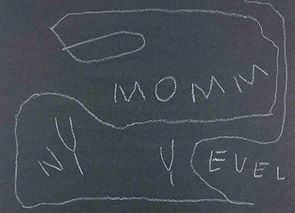 MOMM
NY Y EVEL